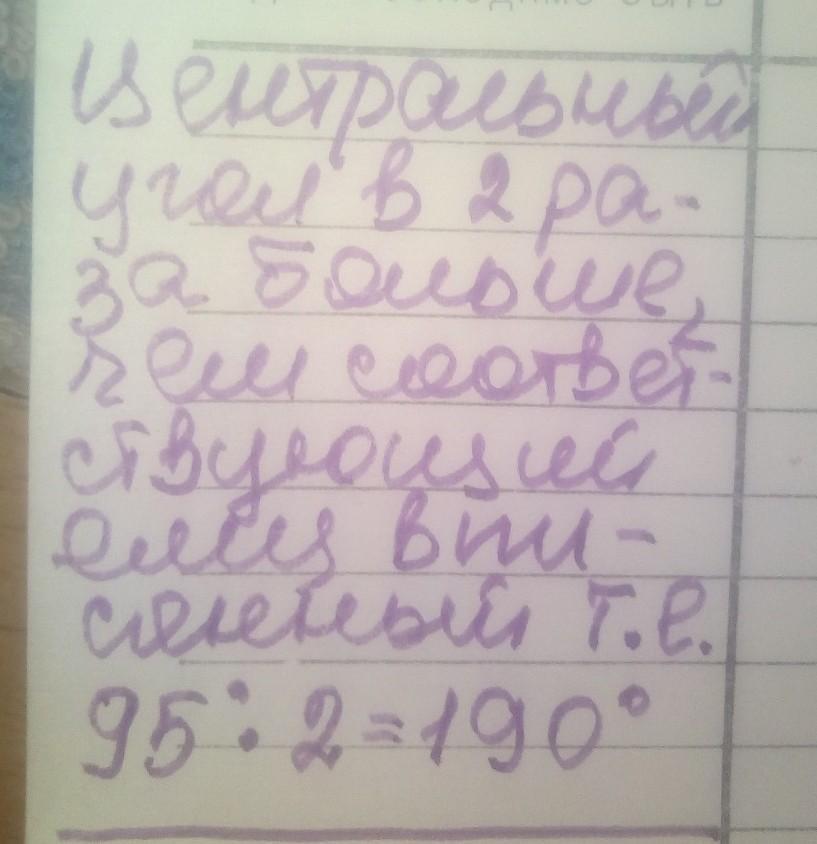 Центральный
угол в 2 ра-
за больше,
чем соответ-
ствующий
ему впи-
санный т.е.
95 : 2 = 190°